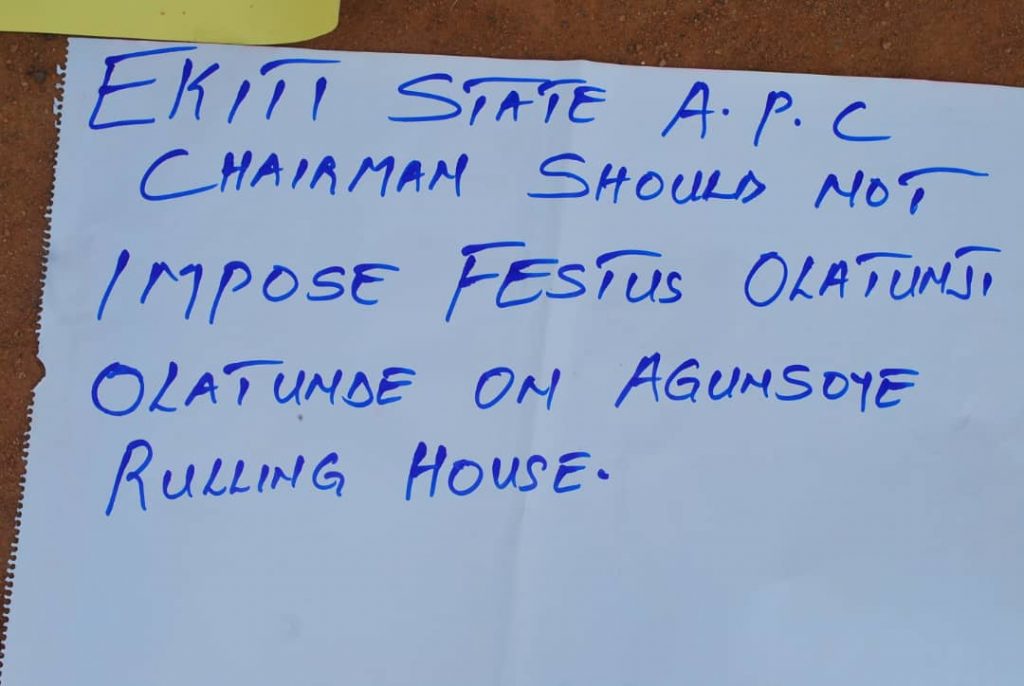 EKITI STATE A.P.C
CHAIRMAN SHOULD NOT
IMPOSE FESTUS OLATUNJI
OLATUNDE ON AGUNSOYE
RULLING HOUSE.